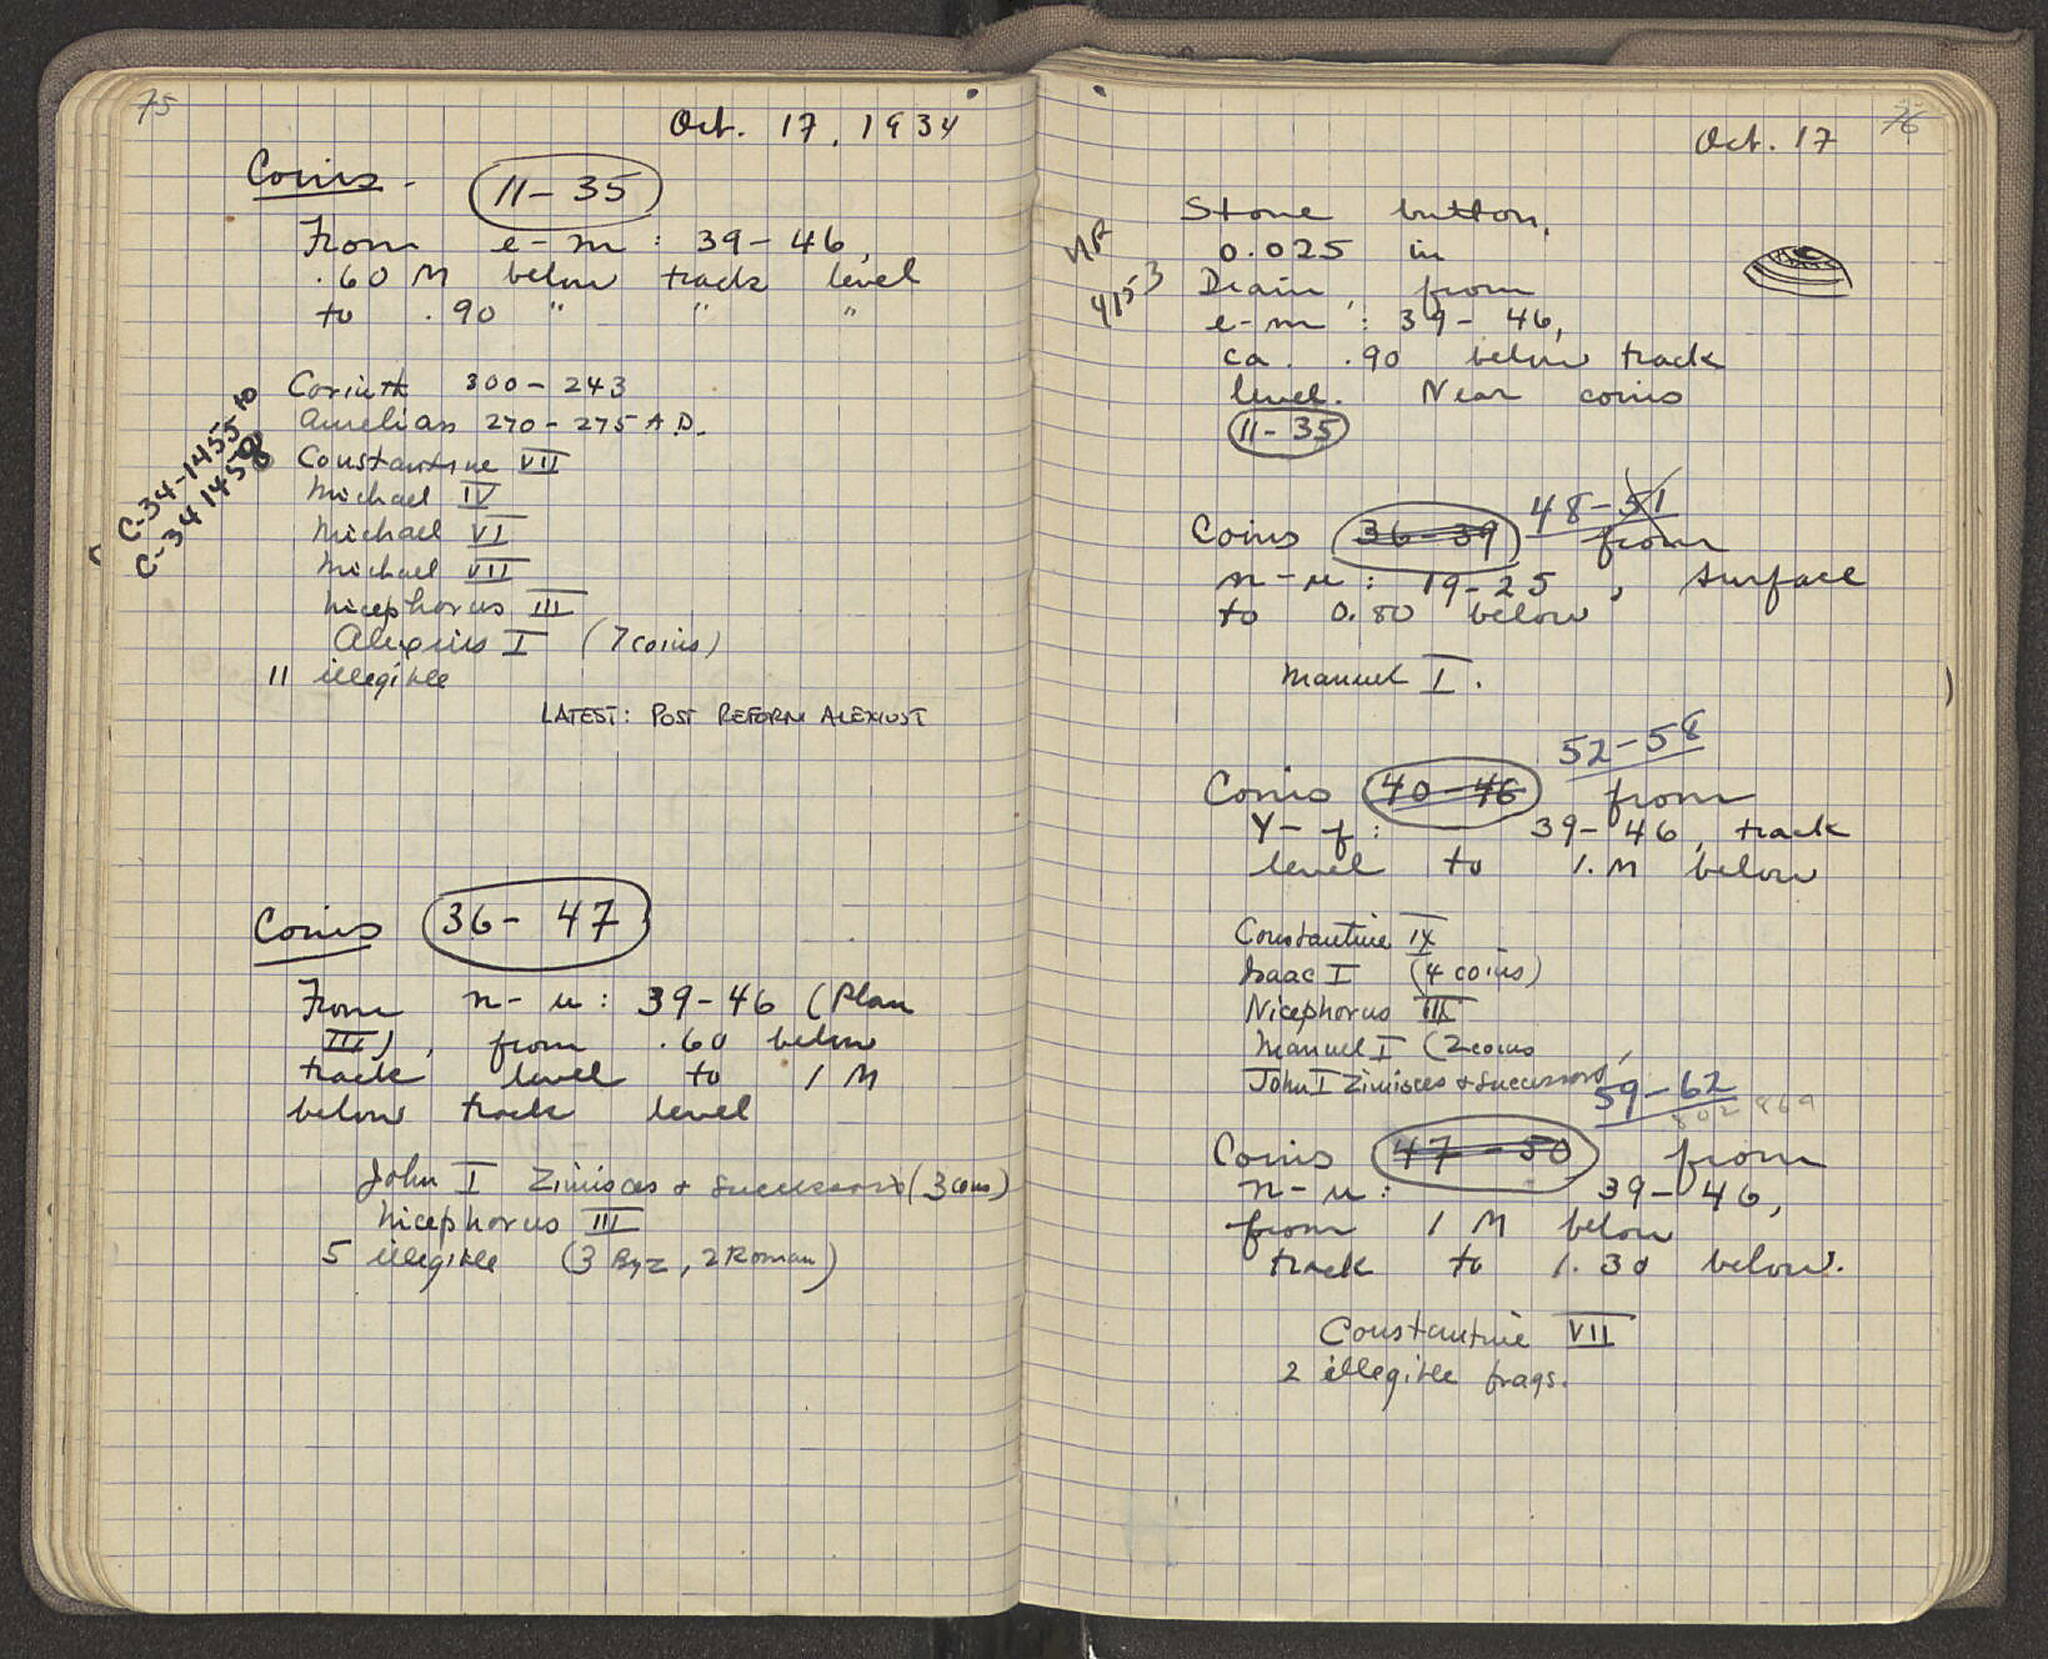 75
Oct. 17, 1934
Coins - 11-35
From e-m: 39-46,
.60 M below track level
to .90 " " "
C-34-1455 to
C-34 1458
Corinth 300-243
Aurelian 270-275 A.D.
Constantine VII
Michael IV
Michael VI
Michael VII
Nicephorus III
Alexius I (7 coins)
11 illegible
LATEST: POST REFORM ALEXIUS I
Coins 36-47
From n-u: 39-46 (Plan
III), from .60 below
track level to 1 M
below track level
John I Zimisces + successors (3 coins)
Nicephorus III
5 illegible (3 Byz, 2 Roman)
76
Oct. 17
Stone button,
MF
4153
0.025 in
Drain, from
e-m: 39-46,
ca. .90 below track
level. Near coins
11-35
48-51
Coins 36-39 from
n-u: 19-25, surface
to 0.80 below
Manuel I.
52-58
Coins 40-46 from
Y-f: 39-46, track
level to 1.M below
Constantine IX
Isaac I (4 coins)
Nicephorus III
Manuel I (2 coins
John I Zimisces + successors
59-62
802 869
Coins 47-50 from
n-u: 39-46,
from 1 M below
track to 1.30 below.
Constantine VII
2 illegible frags.